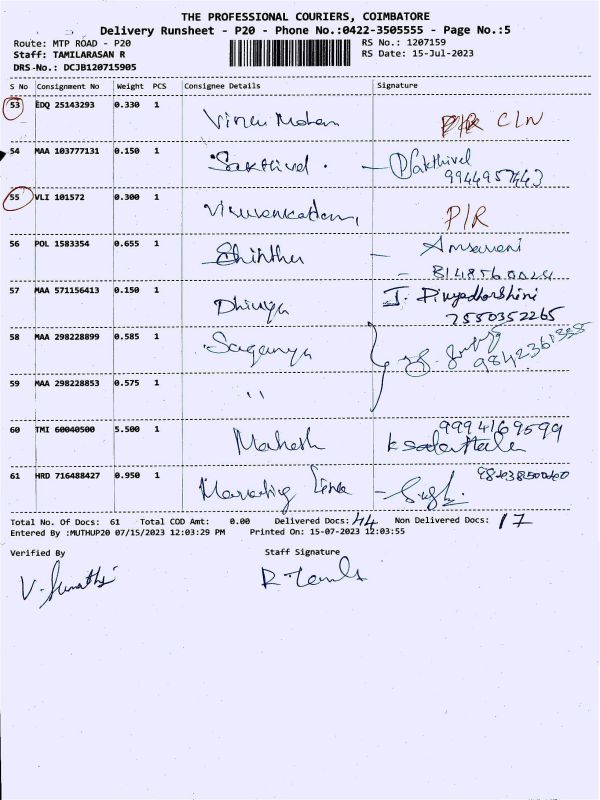 THE PROFESSIONAL COURIERS, COIMBATORE
Delivery Runsheet - P20 - Phone No.:0422-3505555 - Page No.:5
Route: MTP ROAD - P20 RS No.: 1207159
Staff: TAMILARASAN R RS Date: 15-Jul-2023
DRS-No.: DCJB120715905
S No Consignment No Weight PCS Consignee Details Signature
53 EDQ 25143293 0.330 1 P/R CLN
54 MAA 103777131 0.150 1 Sakthivel. - Sakthivel
9944957443
55 VLI 101572 0.300 1 P/R
56 POL 1583354 0.655 1 -
57 MAA 571156413 0.150 1 Dhivya J. Divyadharshini
7550352265
58 MAA 298228899 0.585 1 Saganya
59 MAA 298228853 0.575 1 "
60 TMI 60040500 5.500 1 Mahesh 9994169599
61 HRD 716488427 0.950 1 Marketing
Total No. Of Docs: 61 Total COD Amt: 0.00 Delivered Docs: 44 Non Delivered Docs: 17
Entered By :MUTHUP20 07/15/2023 12:03:29 PM Printed On: 15-07-2023 12:03:55
Verified By Staff Signature